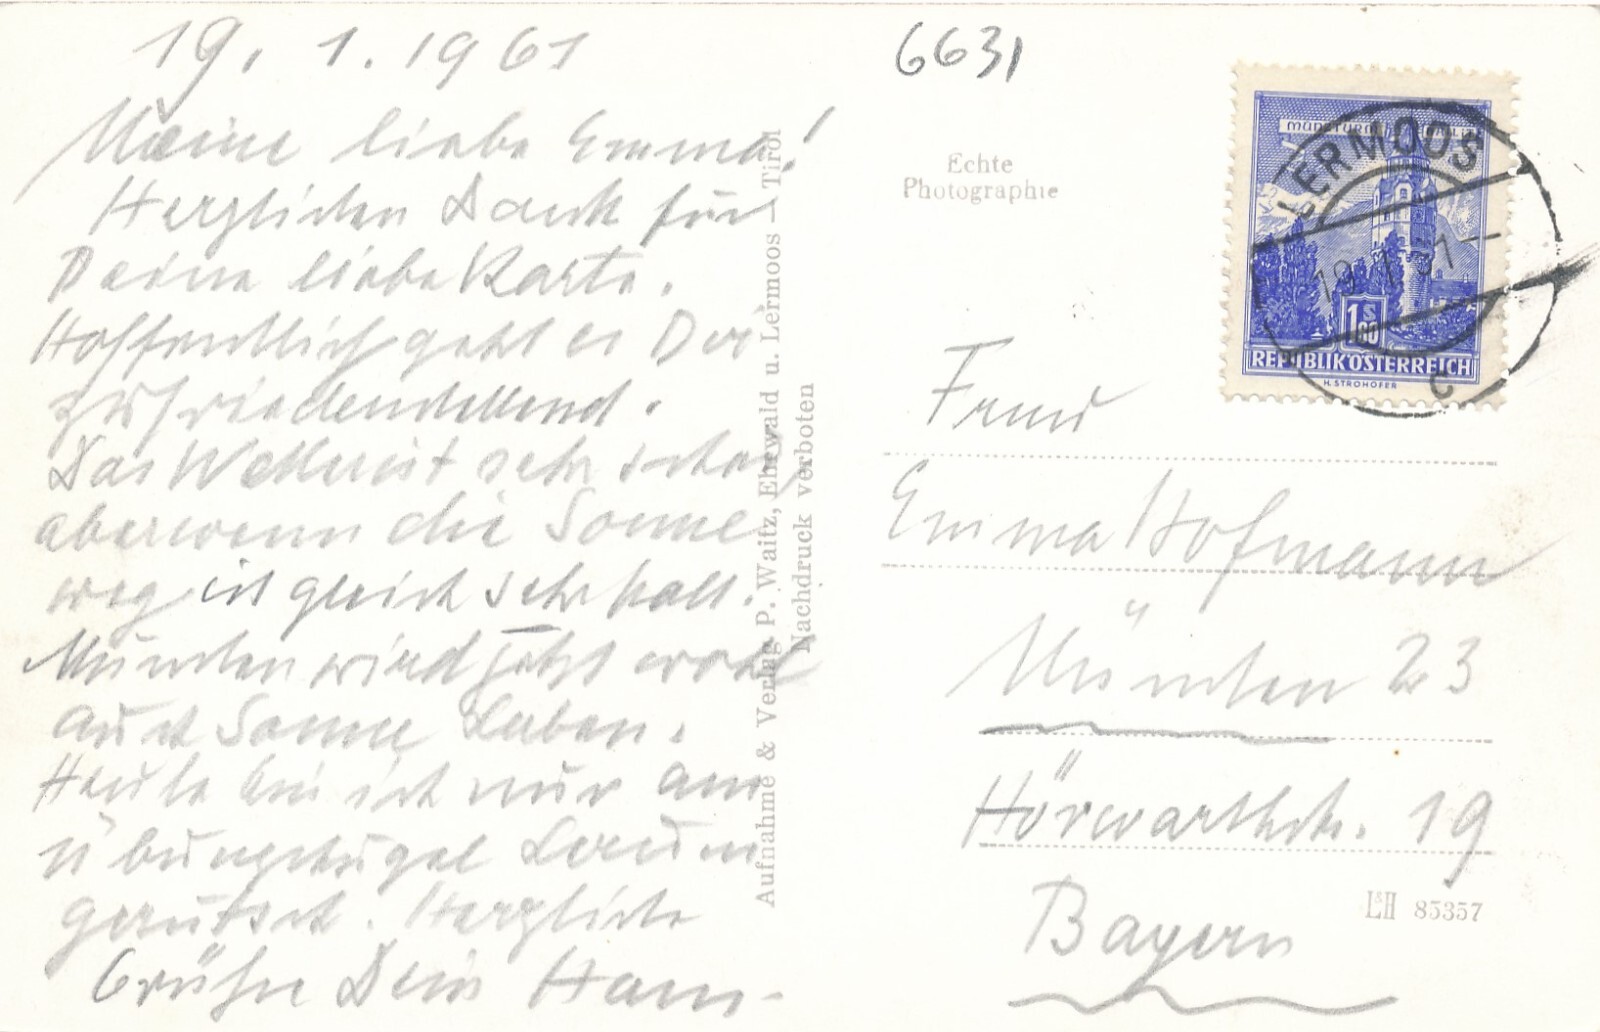 19. 1. 1961
Meine liebe Emma!
Herzlichen Dank für
Deine liebe Karte.
Hoffentlich geht es Dir
zufriedenstellend.
Das Wetter ist sehr schön
aber wenn die Sonne
weg ist gleich sehr kalt.
München wird jetzt wohl
auch Sonne haben.
Heute bin ich nur am
Übungshügel herum
gerutscht. Herzliche
Grüße Dein Hans-
Aufnahme & Verlag P. Waitz, Ehrwald u. Lermoos – Tirol
Nachdruck verboten
6631
Echte
Photographie
MÜNZTURM
LERMOOS
19.1.61
c
1 S 80
REPUBLIK ÖSTERREICH
H. STROHOFER
Emma Hofmann
München 23
Hörwarthstr. 19
Bayern
85357